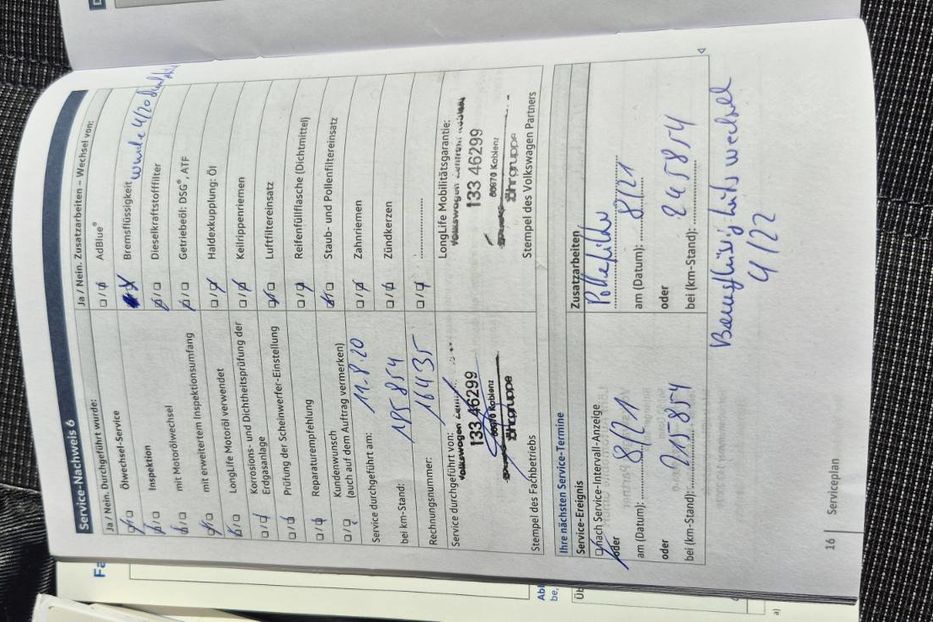 Service-Nachweis 6
Ja / Nein. Durchgeführt wurde:
Ölwechsel-Service
Inspektion
mit Motorölwechsel
mit erweitertem Inspektionsumfang
LongLife Motoröl verwendet
Korrosions- und Dichtheitsprüfung der
Erdgasanlage
Prüfung der Scheinwerfer-Einstellung
Reparaturempfehlung
Kundenwunsch
(auch auf dem Auftrag vermerken)
Service durchgeführt am: 11.8.20
bei km-Stand: 195854
Rechnungsnummer: 16435
Service durchgeführt von:
133 46299
Koblenz
Stempel des Fachbetriebs
Ja / Nein. Zusatzarbeiten – Wechsel von:
AdBlue®
Bremsflüssigkeit wurde 4/20
Dieselkraftstofffilter
Getriebeöl: DSG®, ATF
Haldexkupplung: Öl
Keilrippenriemen
Luftfiltereinsatz
Reifenfüllflasche (Dichtmittel)
Staub- und Pollenfiltereinsatz
Zahnriemen
Zündkerzen
LongLife Mobilitätsgarantie:
133 46299
Koblenz
Stempel des Volkswagen Partners
Ihre nächsten Service-Termine
Service-Ereignis
nach Service-Intervall-Anzeige
oder
am (Datum): 8/21
oder
bei (km-Stand): 215854
Zusatzarbeiten
am (Datum): 8/21
oder
bei (km-Stand): 245854
4/22
16 Serviceplan